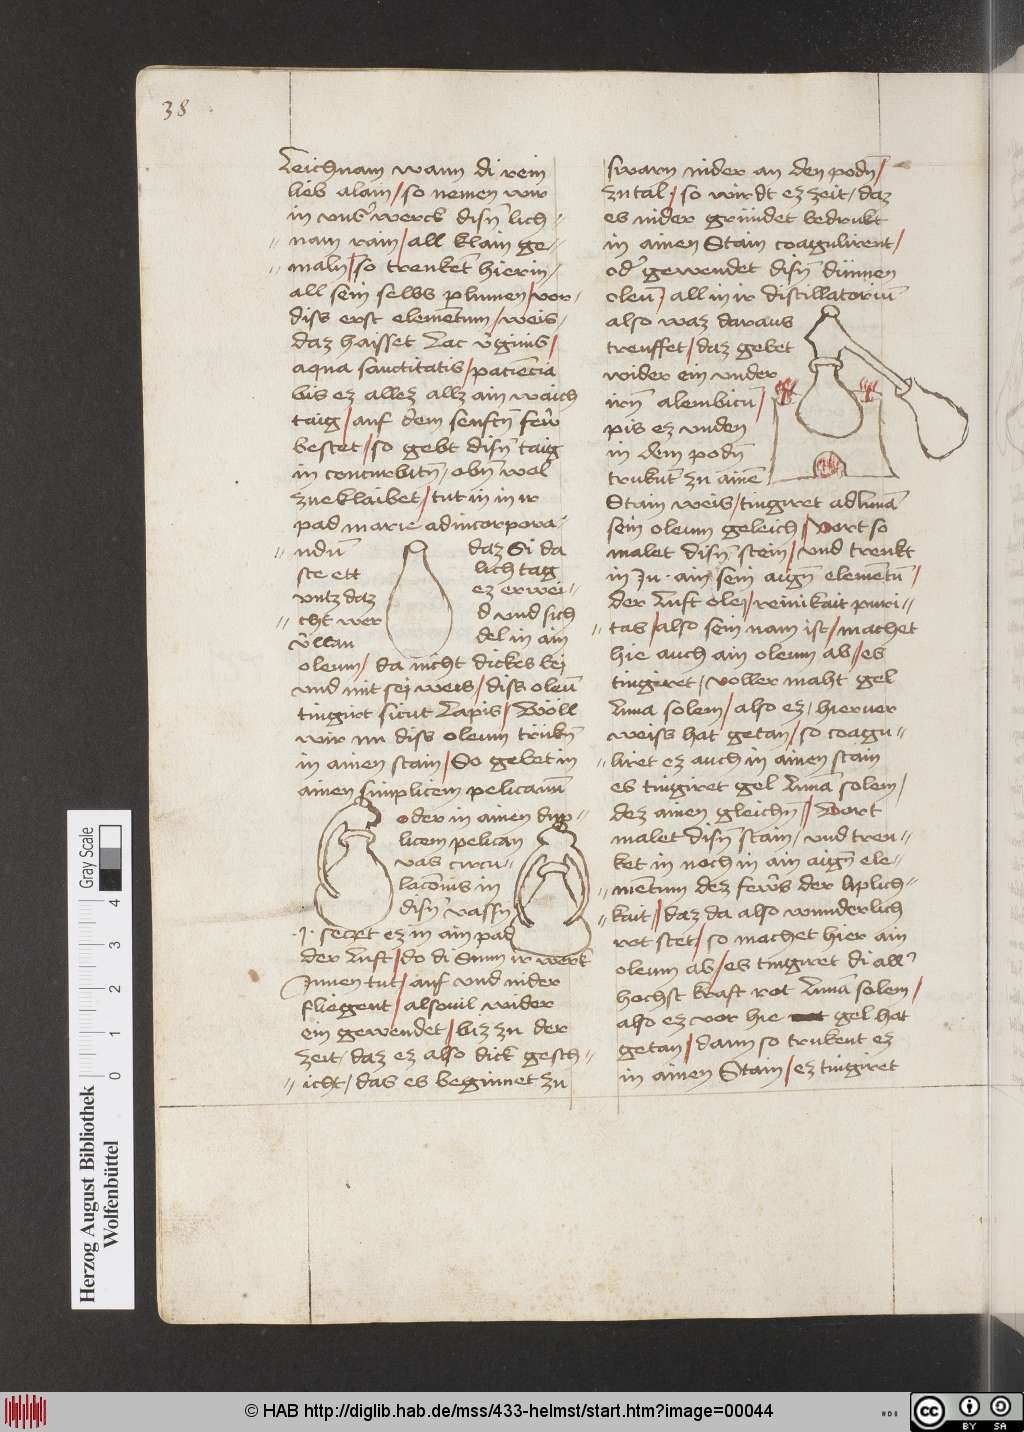 38
Leichnam wann di rein
lieb alain / so nemen wir
in unser werck disen lich=
=nam rain / all klain ge=
=maln / so trenket hierin /
all sein selbs plumen / vor=
diss erst elementum / weis /
daz haisset Lac virginis /
aqua sanctitatis / paciencia
bis ez allez allz ain waich
taig / auf dem senften fewr
bestet / so gebt disen taig
in concurbiten / oben wol
zue klaibet / tut in in ir
pad marie ad incorpora=
=ndum daz Si da
ste ett lich tag
untz daz ez erwei=
=cht wer d und sich
del in ain
oleum / da nicht dickes bei
und mit sei weis / diss oleum
tingirt sicut Lapis / Wöll
wir nu diss oleum trükn
in ainen stain / So gebet in
ainen simplicem pelicanum
oder in ainen dup=
licem pelican
vas circu=
lacionis in
disen vassen
.I. seczet ez in ain pad
der Luft / do di Sunn ir werk
Innen tut / auf und nider
fliegent / alsovil wider
ein gewendet / biz zu der
zeit / daz ez also dick gesch=
=icht / das es beginnet zu
swarn nider an den podn /
zu tal / so wirdt ez zeit / daz
es nider gründet bedrukt
in ainen Stain coagulirent /
oder gewendet disen dünnen
oleum / all in ir distillatorium
also waz daraus
treuffet / daz gebet
wider ein under
iren alembicum /
pis ez unden
in dem podn
truknt zu ainem
Stain weis / tingiret ad lunam
sein oleum geleich / Dort so
malet disen stein / und trenkt
in In . ain sein augen elementum /
der Luft olei / reinikait puri=
=tas / also sein nam ist / machet
hie auch ain oleum ab / es
tingiret / voller maht gel
Luna solem / also ez / hiervor
weiss hat getan / so coagu=
=liret ez auch in ainen stain
es tingiret gel Lunam solem /
dez ainen gleichen / Dort
malet disen stain / und tren=
ket in noch in ain augen ele=
=mentum dez fewrs der liplich=
=kait / daz da also wunderlich
rot stet / so machet hier ain
oleum ab / es tingiret di all
hochst kraft rot Lunam solem /
also ez vor hie gel hat
getan / dann so trukent ez
in ainen Stain / ez tingiret
Gray Scale
0 1 2 3 4
Herzog August Bibliothek
Wolfenbüttel
© HAB http://diglib.hab.de/mss/433-helmst/start.htm?image=00044
cc BY SA